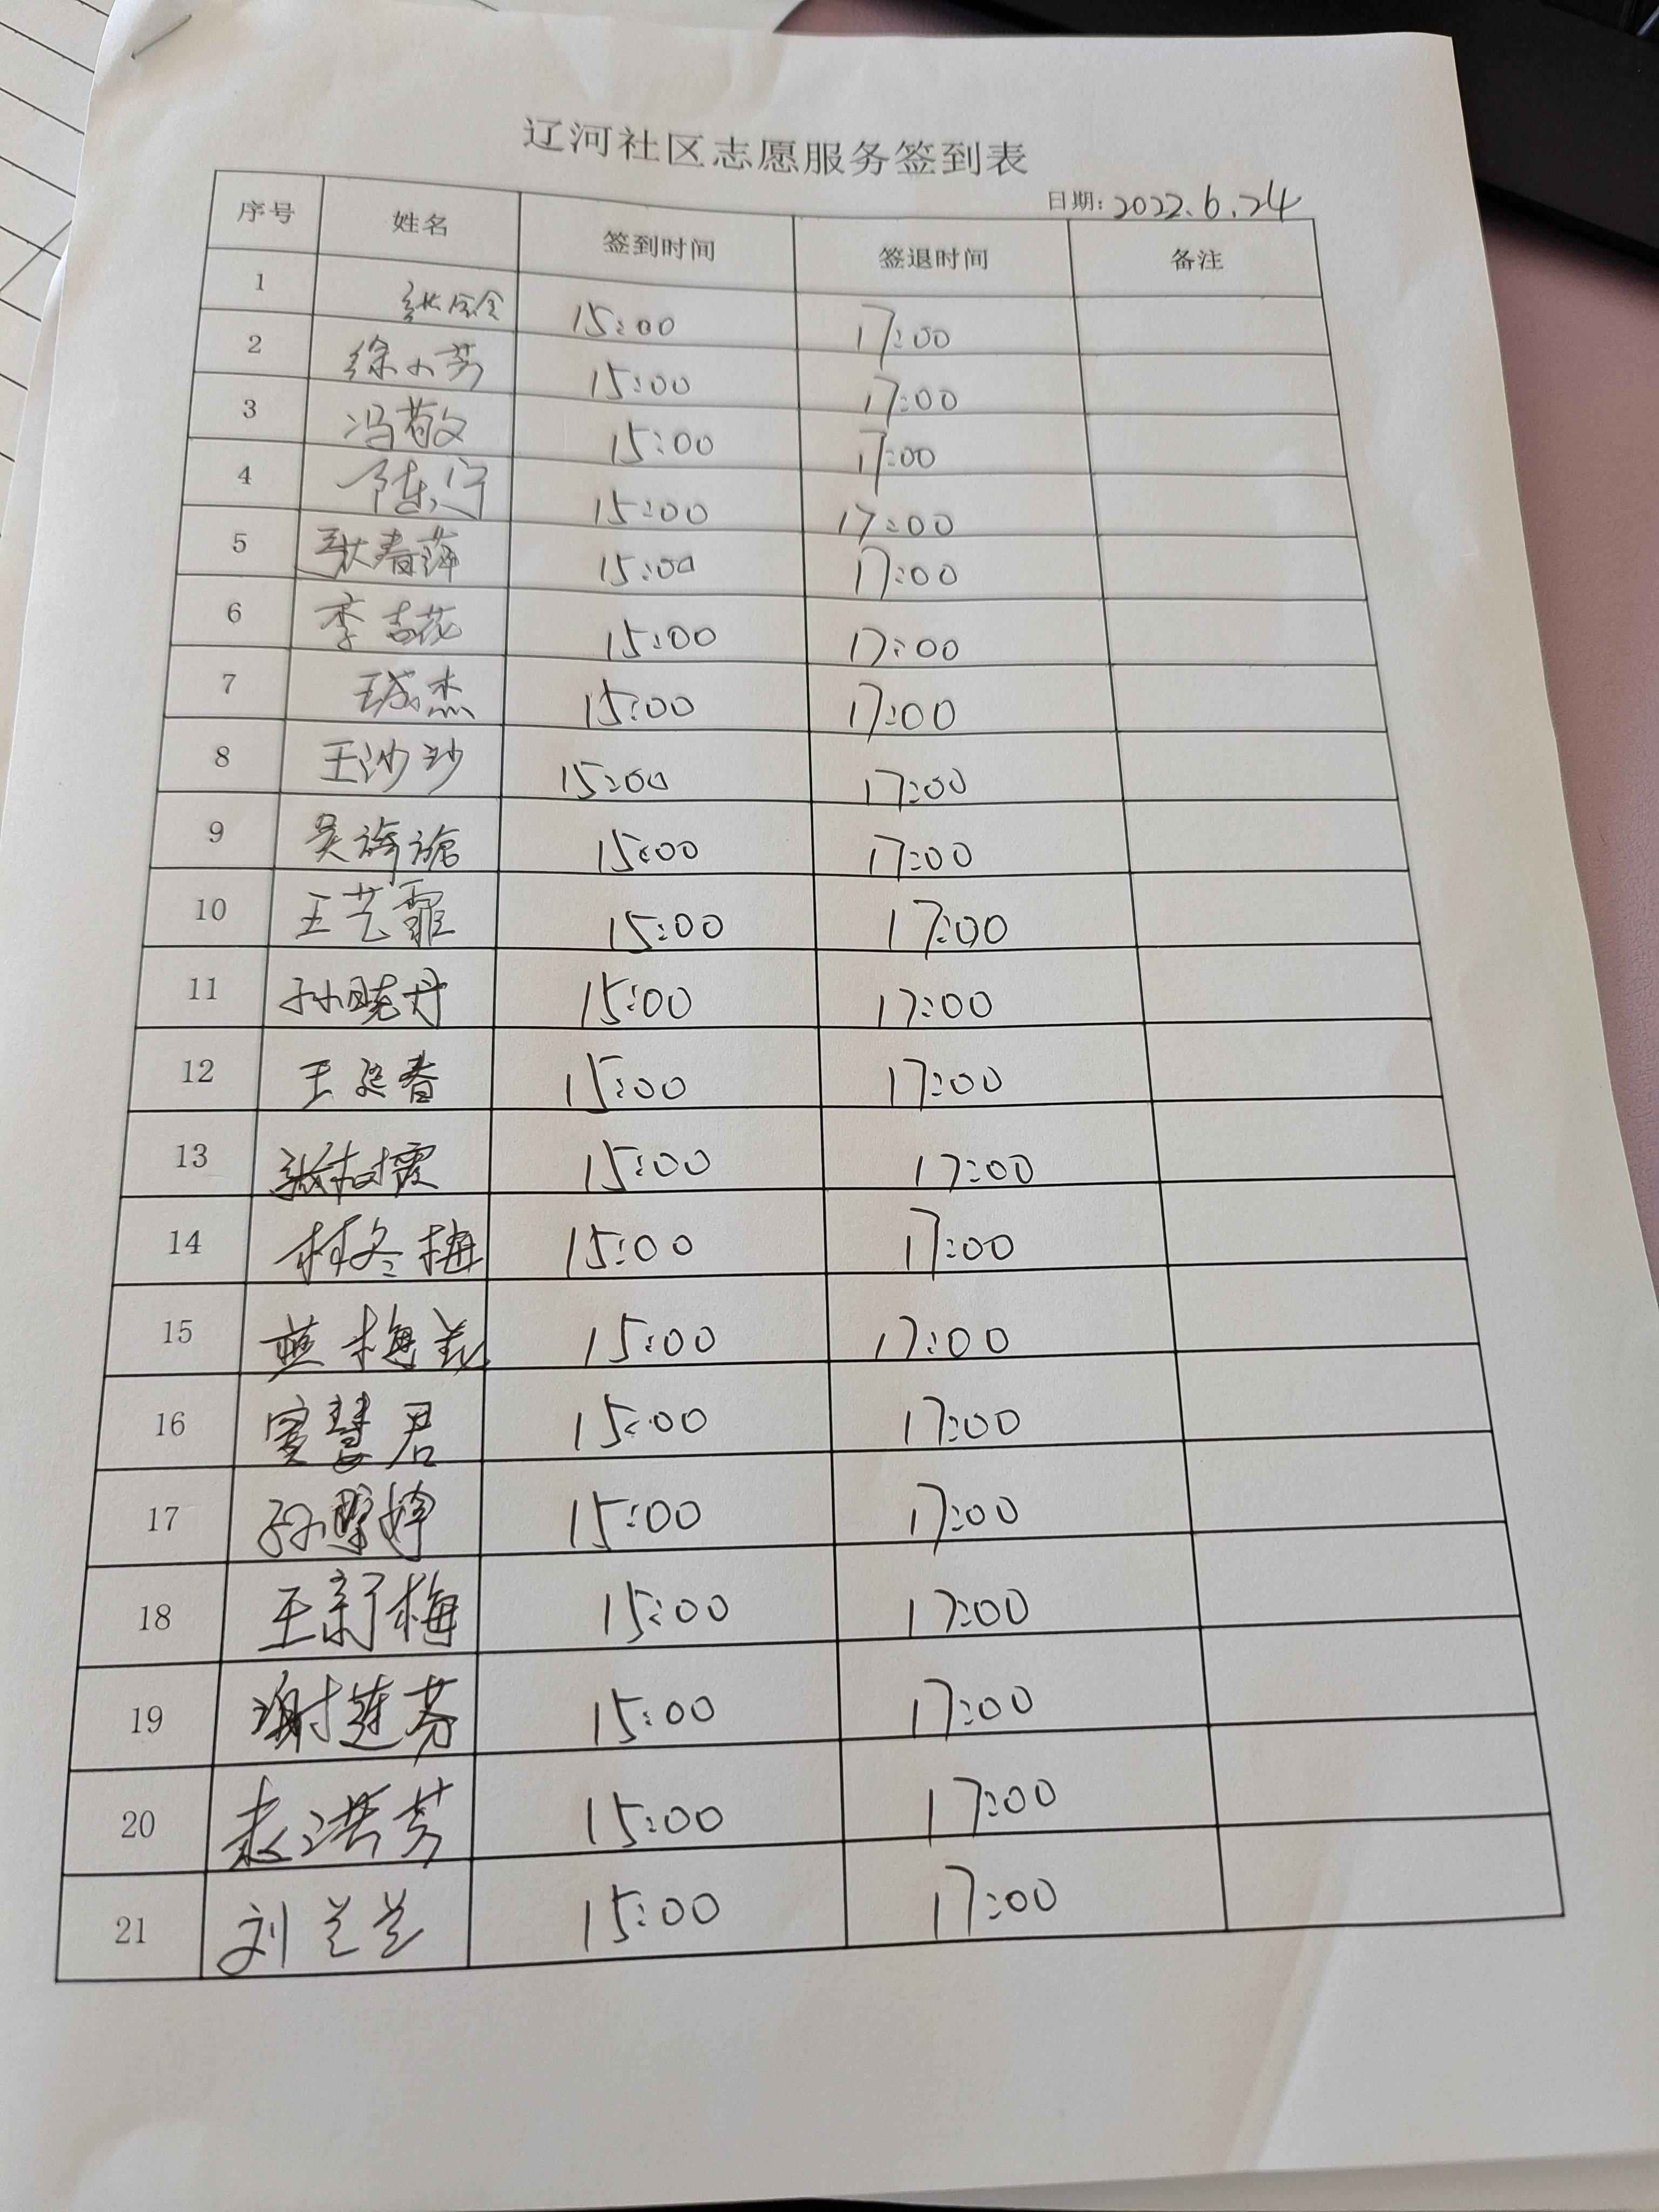 辽河社区志愿服务签到表
日期: 2022.6.24
序号 姓名 签到时间 签退时间 备注
1 15:00 17:00
2 徐小芳 15:00 17:00
3 冯敬文 15:00 17:00
4 陈宁 15:00 17:00
5 耿春萍 15:00 17:00
6 李吉花 15:00 17:00
7 杰 15:00 17:00
8 王沙沙 15:00 17:00
9 吴 15:00 17:00
10 王艺霏 15:00 17:00
11 孙晓丹 15:00 17:00
12 王延春 15:00 17:00
13 张树霞 15:00 17:00
14 林冬梅 15:00 17:00
15 梅 15:00 17:00
16 窦慧君 15:00 17:00
17 孙婷 15:00 17:00
18 王新梅 15:00 17:00
19 谢莲芬 15:00 17:00
20 袁洪芳 15:00 17:00
21 刘兰兰 15:00 17:00